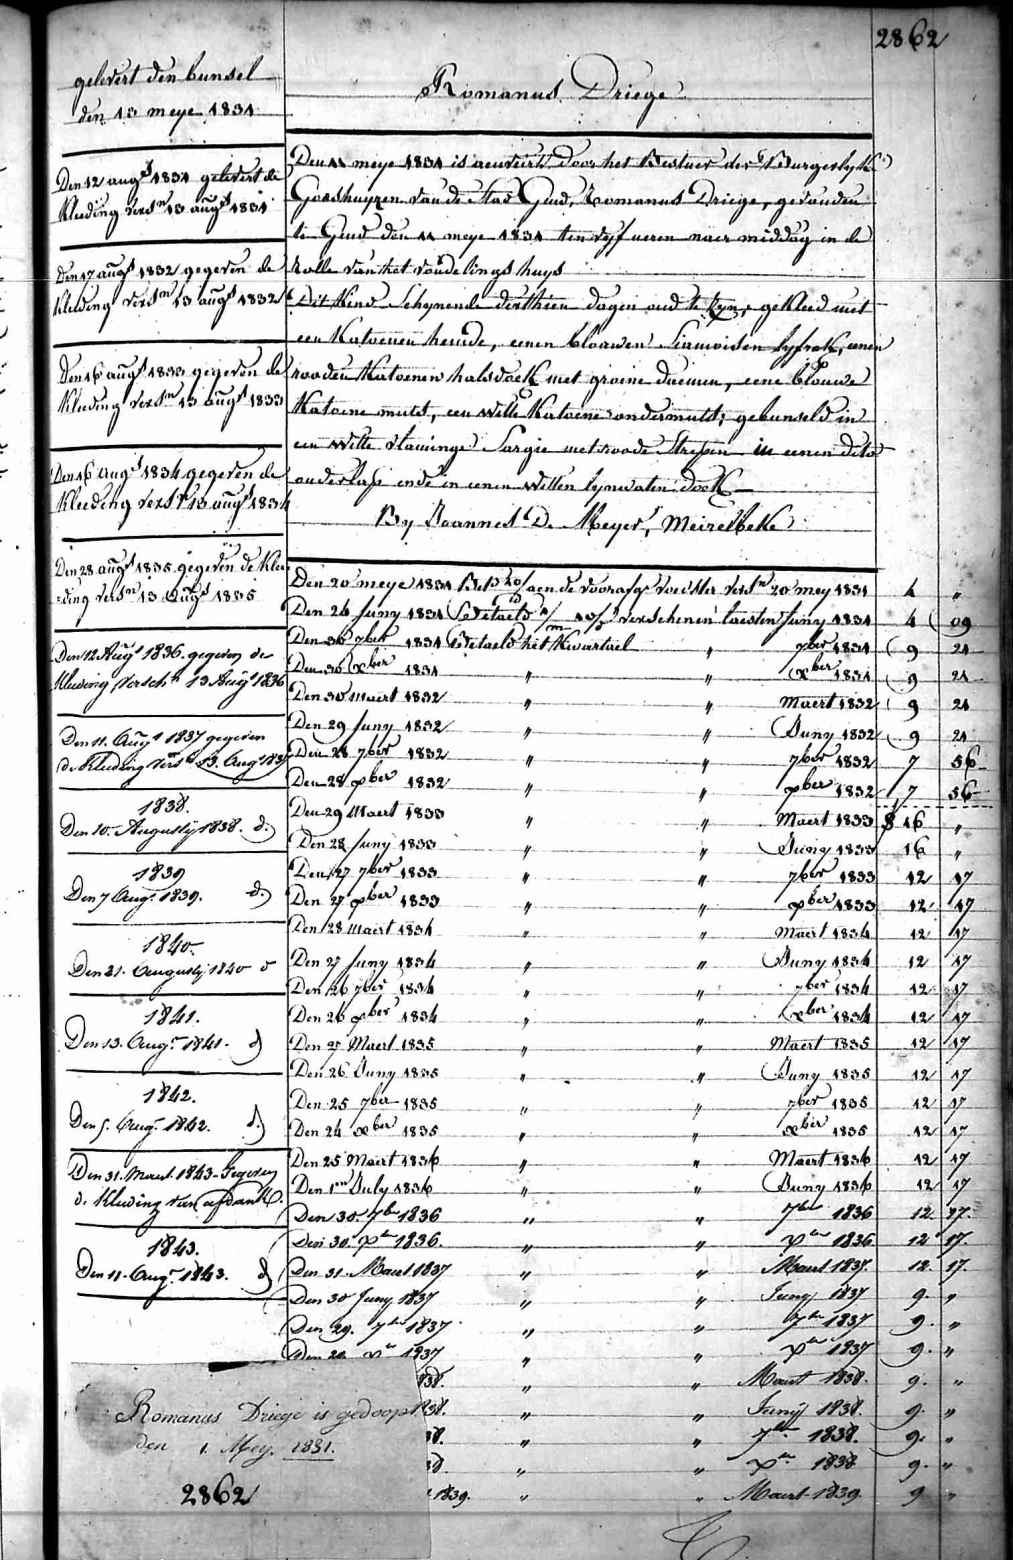 2862
Romanus Driege
gelevert den bunsel
den 13 meye 1831
Den 12 augt 1831 gelevert de
kleeding versn 13 augt 1831
Den 17 augt 1832 gegeven de
kleeding versn 13 augt 1832
Den 16 augt 1833 gegeven de
kleeding versn 13 augt 1833
Den 16 augt 1834 gegeven de
kleeding versn 13 augt 1834
Den 28 augt 1835 gegeven de klee
=ding versn 13 augt 1835
Den 12 Augt 1836 gegeven de
kleeding versch 13 Augt 1836
Den 11. Augt 1837 gegeven
de kleeding versn 13. Augt 1837
1838.
Den 10. Augustij 1838. do
1839
Den 7 Augt 1839. do
1840.
Den 21. Augustij 1840 do
1841.
Den 13. Augt 1841. do
1842.
Den 5. Augt 1842. do
Den 31. Maart 1843. Gegeven
de kleeding van afdank
1843.
Den 11. Augt 1843. do
Den 11 meye 1831 is aenveird door het Bestuer der Burgerlyke
Godshuyzen van de Stad Gend, Romanus Driege, gevonden
te Gend den 11 meye 1831 ten vyf ueren naer middag in de
rolle van het vondelings huys
Dit kind schynende derthien dagen oud te zyn, gekleed met
een katoenen hemde, eenen blauwen Siamoisen lyfrok, eenen
rooden katoenen halsdoek met groene bloemen, eene blouwe
katoene muts, een witte katoene ondermuts, gebunseld in
een witte vlaminge Sargie met roode strepen in eenen dito
onderlap ende in eenen witten lynwaten doek
By Joannes De Meyer, Meirelbeke
Den 20 meye 1831 Betd aen de voorafg voedster versn 20 mey 1831 4 "
Den 24 Juny 1831 Betaeld verschenen laesten Juny 1831 4 09
Den 30 7ber 1831 Betaeld het kwartael " 7ber 1831 9 21
Den 30 xber 1831 " " xber 1831 9 21
Den 30 Maert 1832 " " Maert 1832 9 21
Den 29 Juny 1832 " " Juny 1832 9 21
Den 28 7ber 1832 " " 7ber 1832 7 56
Den 28 xber 1832 " " xber 1832 7 56
Den 29 Maert 1833 " " Maert 1833 16 "
Den 28 Juny 1833 " " Juny 1833 16 "
Den 27 7ber 1833 " " 7ber 1833 12 17
Den 27 xber 1833 " " xber 1833 12 17
Den 28 Maert 1834 " " Maert 1834 12 17
Den 27 Juny 1834 " " Juny 1834 12 17
Den 26 7ber 1834 " " 7ber 1834 12 17
Den 26 xber 1834 " " xber 1834 12 17
Den 27 Maert 1835 " " Maert 1835 12 17
Den 26 Juny 1835 " " Juny 1835 12 17
Den 25 7ber 1835 " " 7ber 1835 12 17
Den 24 xber 1835 " " xber 1835 12 17
Den 25 Maert 1836 " " Maert 1836 12 17
Den 1en July 1836 " " Juny 1836 12 17
Den 30. 7ber 1836 " " 7ber 1836 12 17.
Den 30. Xber 1836. " " Xber 1836 12 17.
Den 31. Maart 1837 " " Maart 1837. 12. 17.
Den 30 Juny 1837 " " Juny 1837 9. "
Den 29. 7ber 1837 " " 7ber 1837 9. "
Den 29 Xber 1837 " " Xber 1837 9. "
1838. " " Maart 1838. 9. "
1838. " " Junij 1838. 9. "
38. " " 7ber 1838. 9. "
38 " " Xber 1838 9. "
1839. " " Maart 1839 9 "
Romanus Driege is gedoopt
den 1. Mey. 1831.
2862